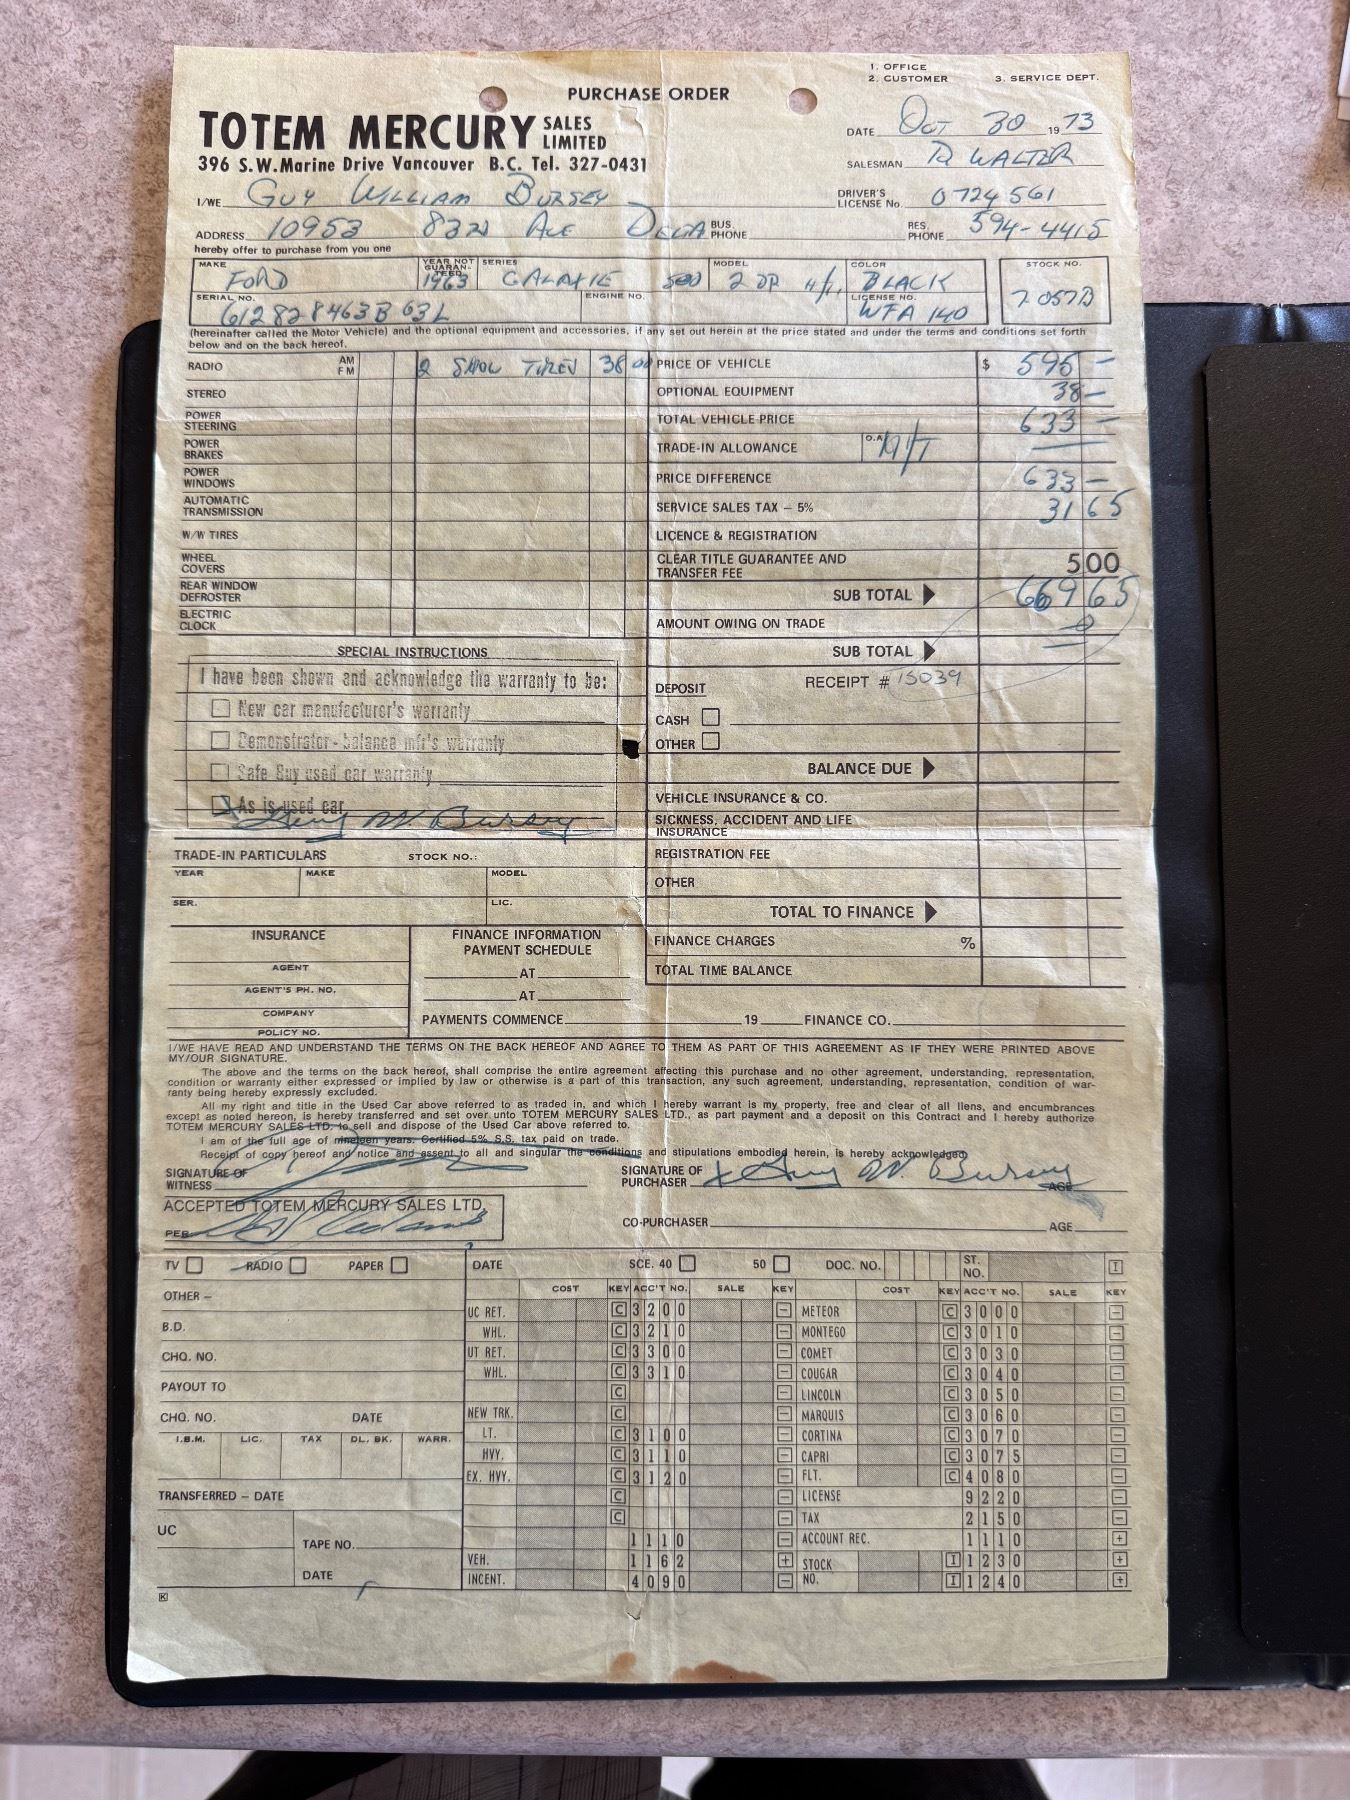 1. OFFICE
2. CUSTOMER 3. SERVICE DEPT.
PURCHASE ORDER
TOTEM MERCURY SALES LIMITED
396 S.W. Marine Drive Vancouver B.C. Tel. 327-0431
DATE Oct 30 1973
SALESMAN R WALTER
I/WE GUY WILLIAM BURSEY
DRIVER'S LICENSE No. 0724561
ADDRESS 10953 82 Ave BUS. PHONE RES. PHONE 594-4415
hereby offer to purchase from you one
MAKE FORD YEAR NOT GUARANTEED 1963 SERIES GALAXIE 500 MODEL 2 DR H/T COLOR BLACK STOCK NO.
SERIAL NO. 612828463B63L ENGINE NO. LICENSE NO. WFA 140 7057B
(hereinafter called the Motor Vehicle) and the optional equipment and accessories, if any set out herein at the price stated and under the terms and conditions set forth
below and on the back hereof.
RADIO AM FM 2 SNOW TIRES 38 00 PRICE OF VEHICLE $ 595 —
STEREO OPTIONAL EQUIPMENT 38 —
POWER STEERING TOTAL VEHICLE PRICE 633 —
POWER BRAKES TRADE-IN ALLOWANCE O.A. N/T —
POWER WINDOWS PRICE DIFFERENCE 633 —
AUTOMATIC TRANSMISSION SERVICE SALES TAX – 5% 31 65
W/W TIRES LICENCE & REGISTRATION
WHEEL COVERS CLEAR TITLE GUARANTEE AND TRANSFER FEE 5 00
REAR WINDOW DEFROSTER SUB TOTAL 669 65
ELECTRIC CLOCK AMOUNT OWING ON TRADE 0
SPECIAL INSTRUCTIONS SUB TOTAL
I have been shown and acknowledge the warranty to be:
DEPOSIT RECEIPT # 15039
New car manufacturer's warranty
CASH
Demonstrator - balance mfr's warranty
OTHER
Safe Buy used car warranty
BALANCE DUE
As is used car
VEHICLE INSURANCE & CO.
Guy W Bursey
SICKNESS, ACCIDENT AND LIFE INSURANCE
TRADE-IN PARTICULARS STOCK NO.: REGISTRATION FEE
YEAR MAKE MODEL
OTHER
SER. LIC.
TOTAL TO FINANCE
INSURANCE FINANCE INFORMATION FINANCE CHARGES %
PAYMENT SCHEDULE
AGENT AT TOTAL TIME BALANCE
AGENT'S PH. NO. AT
COMPANY PAYMENTS COMMENCE 19 FINANCE CO.
POLICY NO.
I/WE HAVE READ AND UNDERSTAND THE TERMS ON THE BACK HEREOF AND AGREE TO THEM AS PART OF THIS AGREEMENT AS IF THEY WERE PRINTED ABOVE
MY/OUR SIGNATURE.
The above and the terms on the back hereof, shall comprise the entire agreement affecting this purchase and no other agreement, understanding, representation,
condition or warranty either expressed or implied by law or otherwise is a part of this transaction, any such agreement, understanding, representation, condition of war-
ranty being hereby expressly excluded.
All my right and title in the Used Car above referred to as traded in, and which I hereby warrant is my property, free and clear of all liens, and encumbrances
except as noted hereon, is hereby transferred and set over unto TOTEM MERCURY SALES LTD., as part payment and a deposit on this Contract and I hereby authorize
TOTEM MERCURY SALES LTD. to sell and dispose of the Used Car above referred to.
I am of the full age of nineteen years. Certified 5% S.S. tax paid on trade.
Receipt of copy hereof and notice and assent to all and singular the conditions and stipulations embodied herein, is hereby acknowledged
SIGNATURE OF WITNESS SIGNATURE OF PURCHASER x Guy W Bursey AGE
ACCEPTED TOTEM MERCURY SALES LTD.
PER CO-PURCHASER AGE
TV RADIO PAPER DATE SCE. 40 50 DOC. NO. ST. NO. I
OTHER – COST KEY ACC'T NO. SALE KEY COST KEY ACC'T NO. SALE KEY
UC RET. C 3200 – METEOR C 3000 –
B.D. WHL. C 3210 – MONTEGO C 3010 –
CHQ. NO. UT RET. C 3300 – COMET C 3030 –
WHL. C 3310 – COUGAR C 3040 –
PAYOUT TO C – LINCOLN C 3050 –
CHQ. NO. DATE NEW TRK. C – MARQUIS C 3060 –
I.B.M. LIC. TAX DL. BK. WARR. LT. C 3100 – CORTINA C 3070 –
HVY. C 3110 – CAPRI C 3075 –
EX. HVY. C 3120 – FLT. C 4080 –
TRANSFERRED – DATE C – LICENSE 9220 –
C – TAX 2150 –
UC TAPE NO. 1110 – ACCOUNT REC. 1110 +
VEH. 1162 + STOCK I 1230 +
DATE INCENT. 4090 – NO. I 1240 +
K